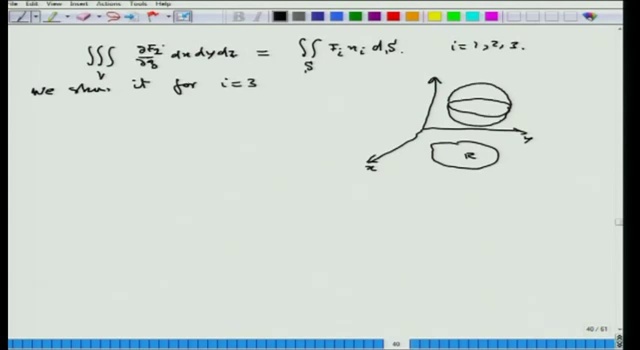 File Edit View Insert Actions Tools Help
∭_V ∂F_i/∂x_i dx dy dz = ∬_S F_i n_i dS. i=1,2,3.
we show it for i=3
y
R
x
40 / 61
40